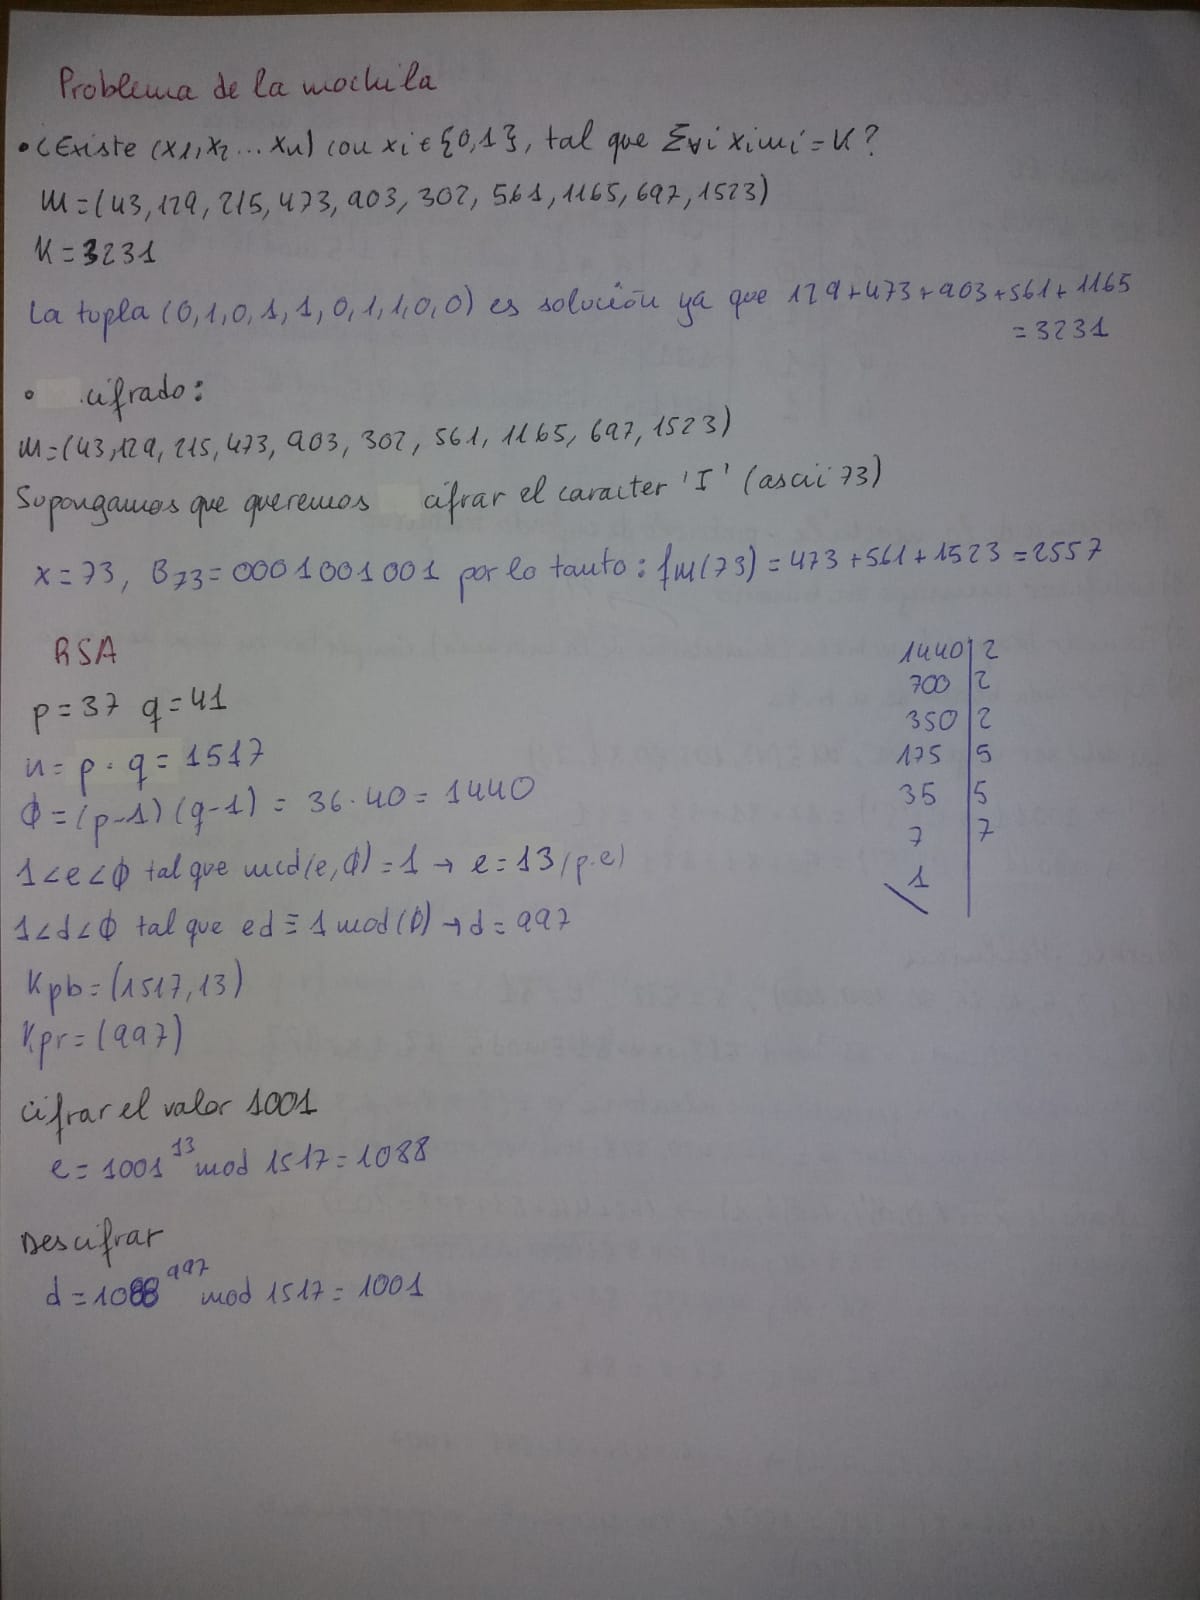 Problema de la mochila
• ¿Existe (x1, x2 ... xn) con xi ∈ {0,1}, tal que Σ∀i ximi = K?
m = (43, 129, 215, 473, 903, 302, 561, 1165, 697, 1523)
K = 3231
La tupla (0,1,0,1,1,0,1,1,0,0) es solución ya que 129+473+903+561+1165
= 3231
• cifrado:
m = (43, 129, 215, 473, 903, 302, 561, 1165, 697, 1523)
Supongamos que queremos cifrar el caracter 'I' (ascii 73)
x = 73, B73 = 0001001001 por lo tanto: fm(73) = 473+561+1523 = 2557
RSA
p = 37 q = 41
n = p · q = 1517
ϕ = (p-1) (q-1) = 36·40 = 1440
1<e<ϕ tal que mcd(e,ϕ) = 1 → e = 13 (p.e)
1<d<ϕ tal que ed ≡ 1 mod(ϕ) → d = 997
Kpb = (1517,13)
Kpr = (997)
1440 | 2
700 | 2
350 | 2
175 | 5
35 | 5
7 | 7
1
cifrar el valor 1001
e = 1001^13 mod 1517 = 1088
Descifrar
d = 1088^997 mod 1517 = 1001